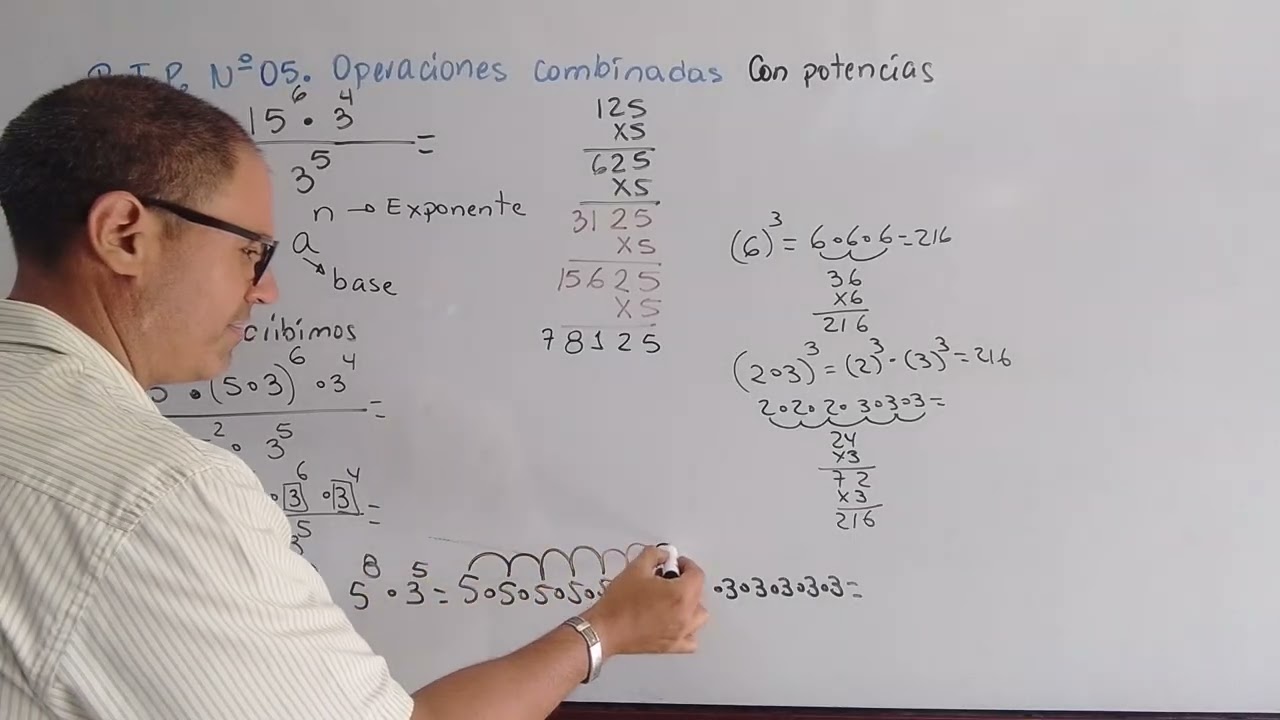 Nº 05. Operaciones combinadas Con potencias
15⁶ • 3⁴
3⁵
=
n → Exponente
a
base
ciibimos
• (5•3)⁶ •3⁴
² • 3⁵
=
•3⁶ •3⁴
3⁵
=
5⁸ • 3⁵ = 5•5•5•5•5 •3•3•3•3•3=
125
X5
625
X5
3125
X5
15625
X5
78125
(6)³ = 6•6•6=216
36
X6
216
(2•3)³ = (2)³ • (3)³ = 216
2•2•2•3•3•3=
24
X3
72
X3
216